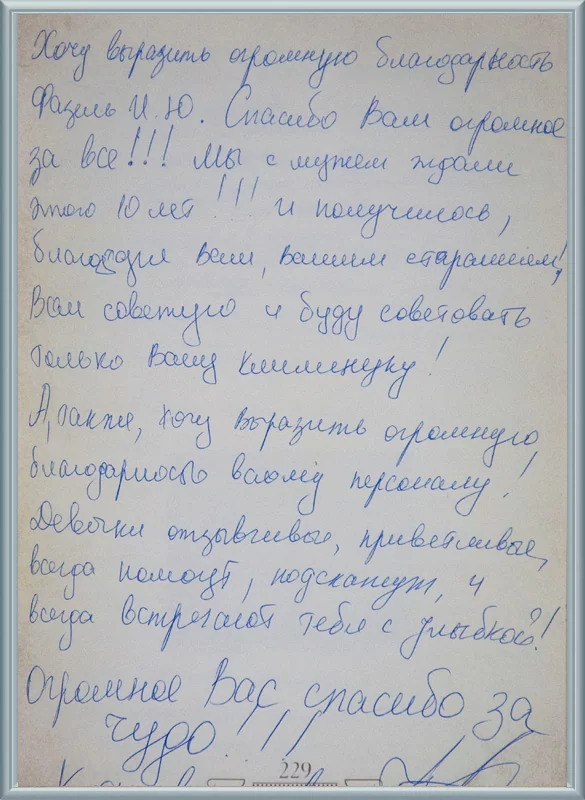 Хочу выразить огромную благодарность
Фазель И.Ю. Спасибо Вам огромное
за все!!! Мы с мужем ждали
этого 10 лет!!! и получилось,
благодаря Вам, Вашим стараниям!
Всем советую и буду советовать
только Вашу клининуку!
А, также, хочу выразить огромную
благодарность всему персоналу!
Девочки отзывчивые, приветливые,
всегда помогут, подскажут, и
всегда встречают тебя с улыбкой!
Огромное Вас спасибо за
чудо!!!
229